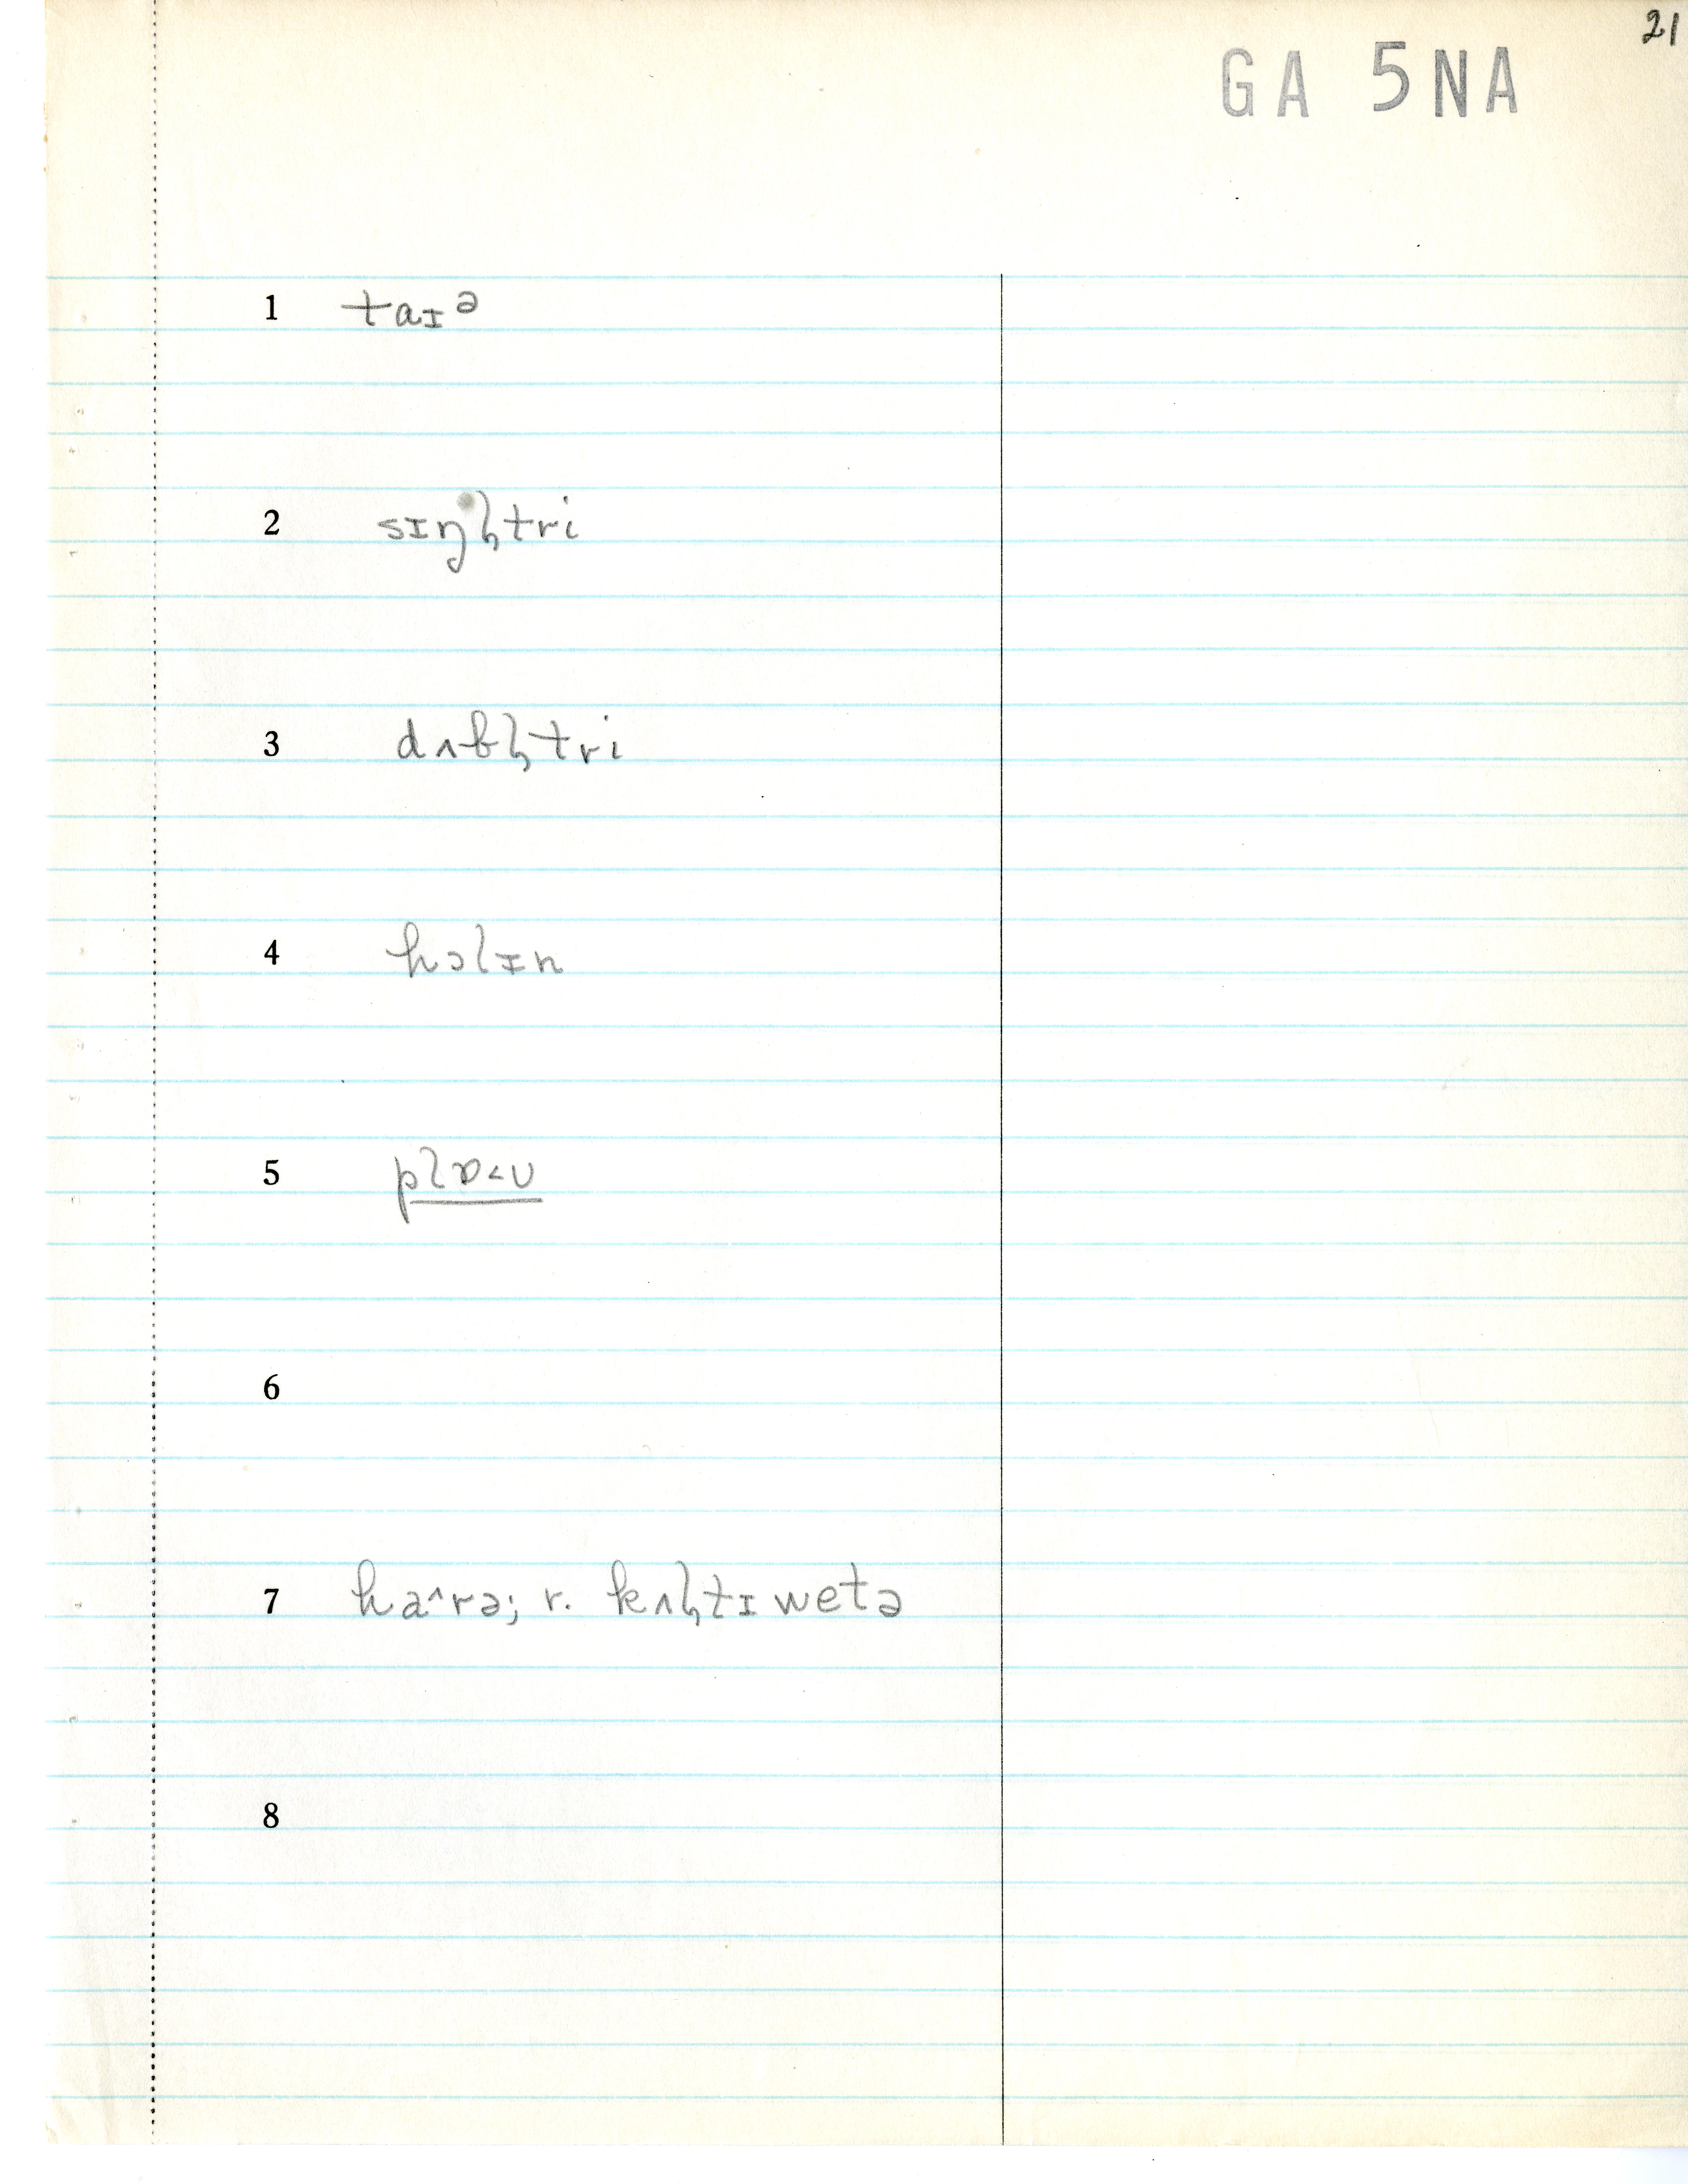 21
GA 5NA
1 taɪᵊ
2 sɪŋl̩tri
3 dʌbl̩tri
4 hɔlɪn
5 plɒ<ʊ
6
7 ha^rə; r. kʌl̩tɪwetə
8